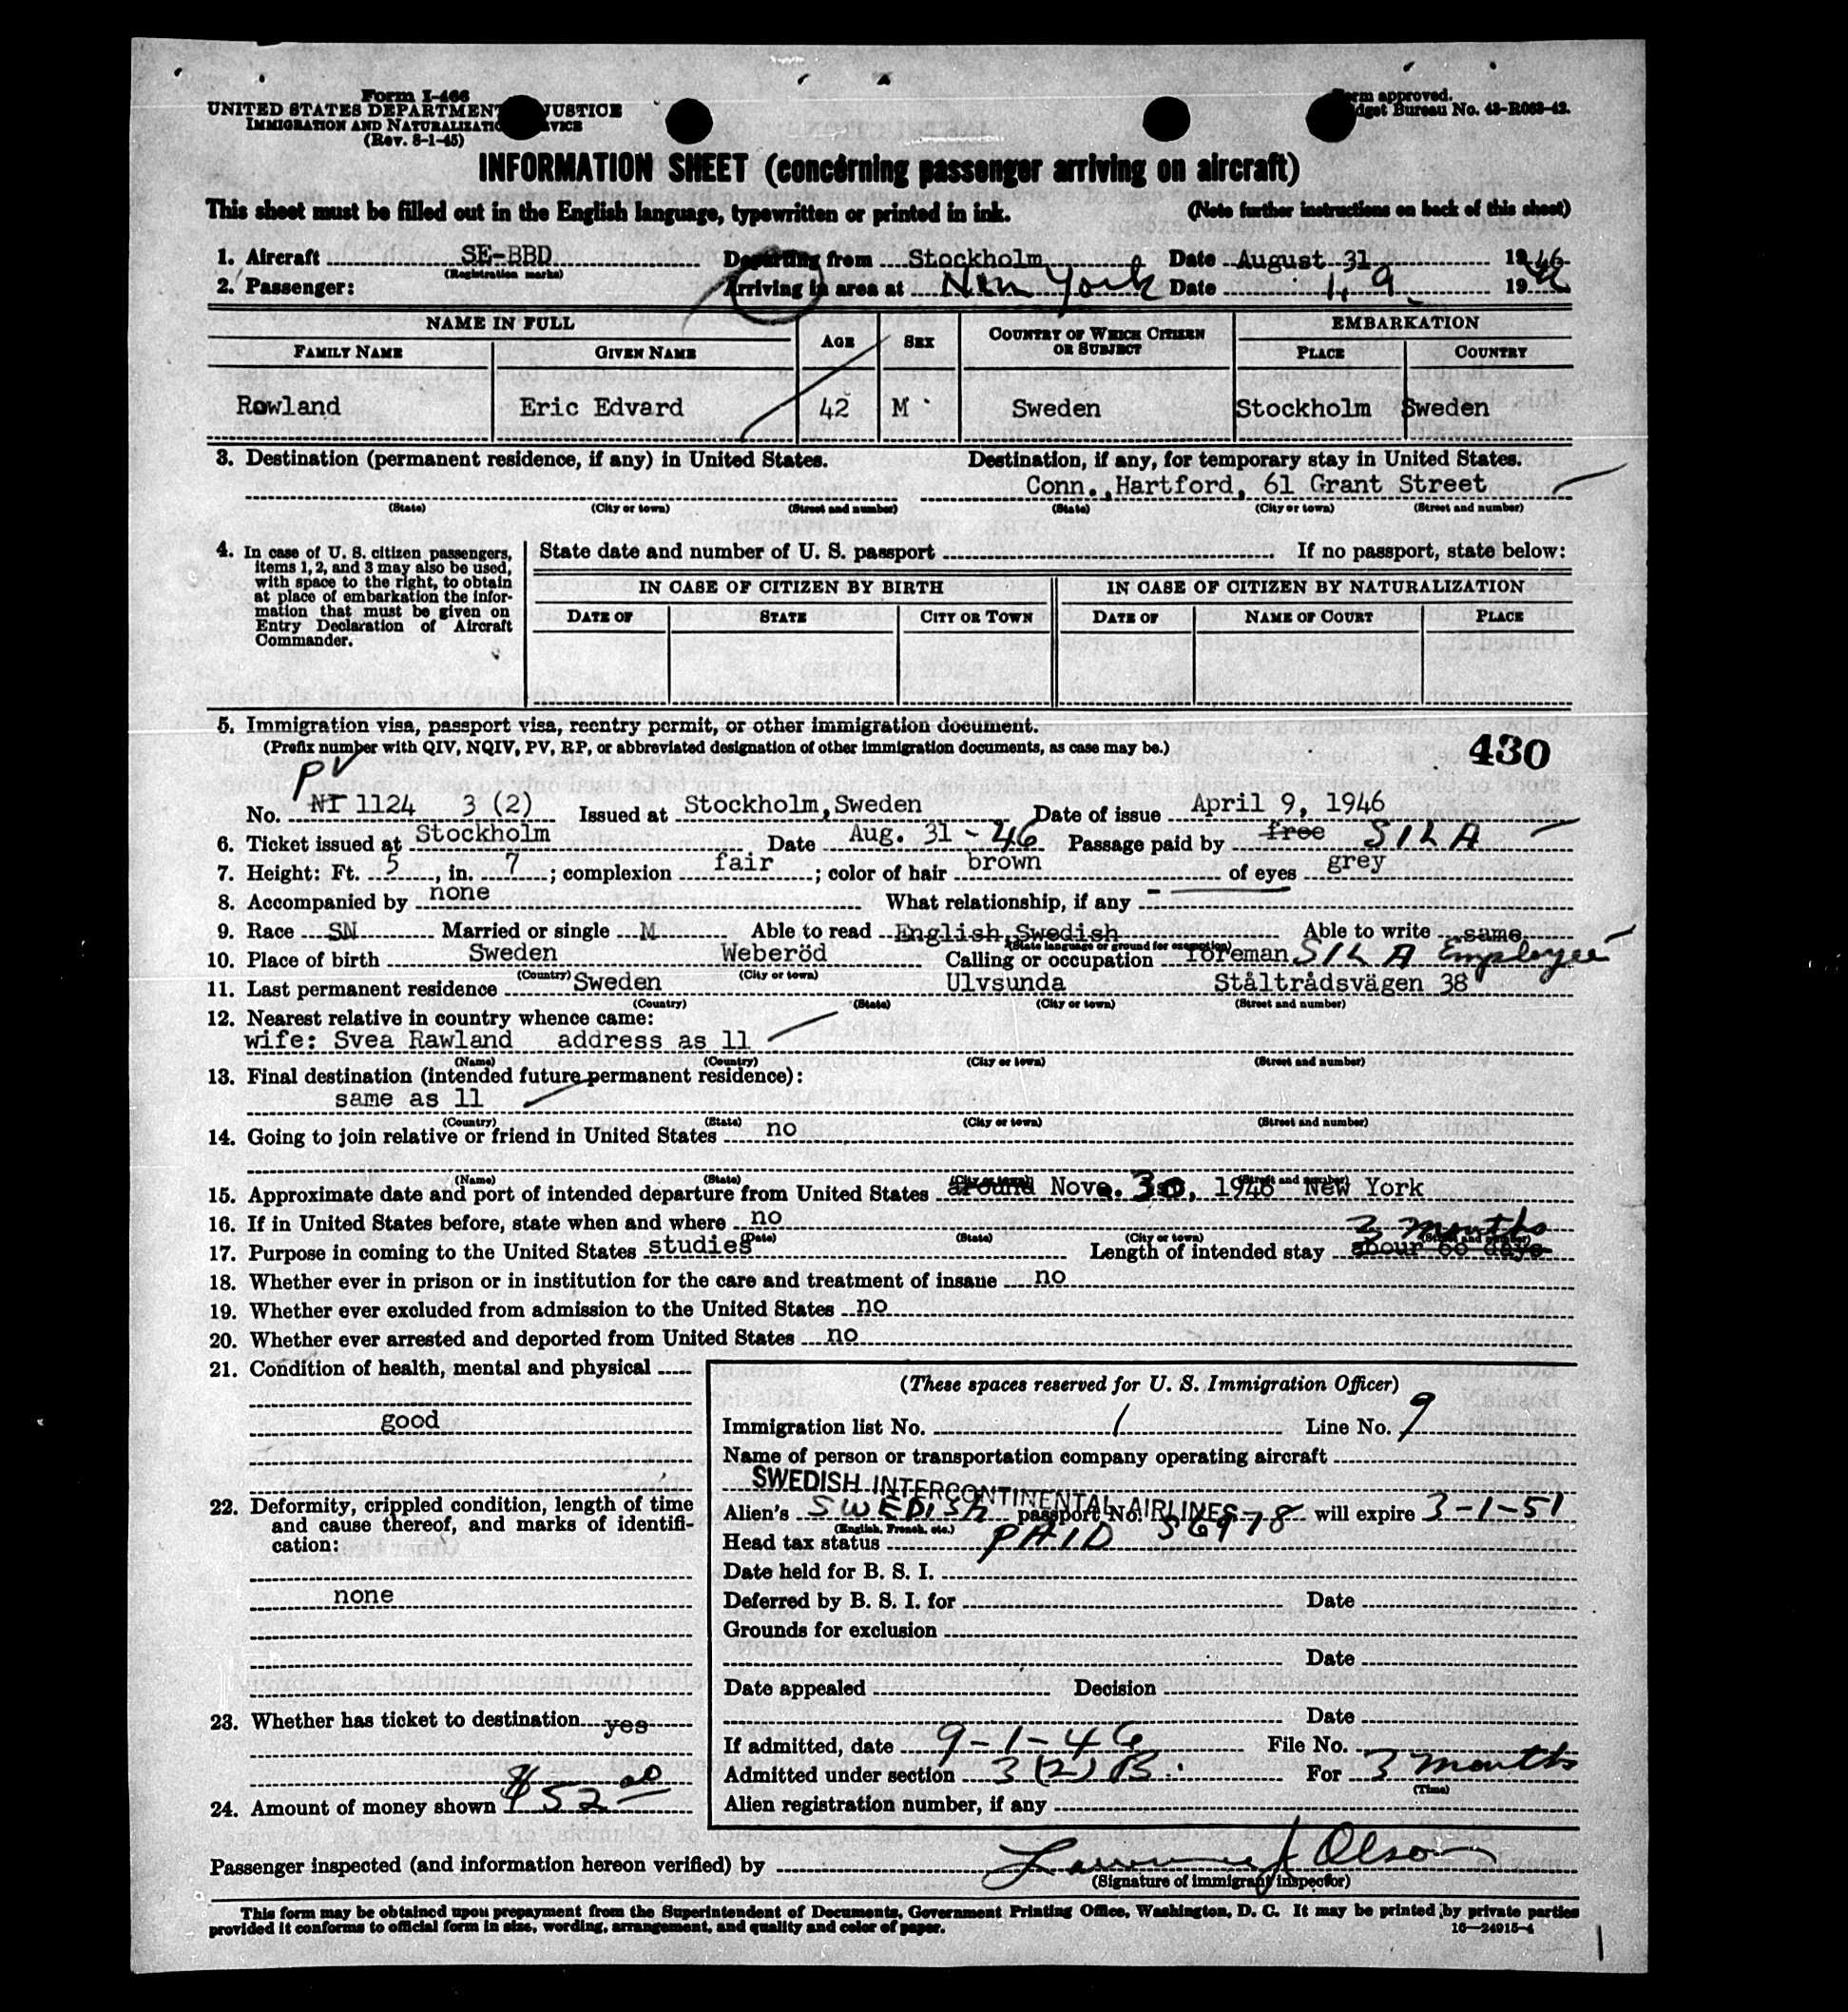 Form I-466
UNITED STATES DEPARTMENT JUSTICE
IMMIGRATION AND NATURALIZATION SERVICE
(Rev. 8-1-45)
Form approved.
Budget Bureau No. 43-R063-42.
INFORMATION SHEET (concerning passenger arriving on aircraft)
This sheet must be filled out in the English language, typewritten or printed in ink. (Note further instructions on back of this sheet)
1. Aircraft SE-BBD Departing from Stockholm Date August 31 1946
(Registration marks)
2. Passenger: Arriving in area at New York Date 1, 9 19
NAME IN FULL AGE SEX COUNTRY OF WHICH CITIZEN OR SUBJECT EMBARKATION
FAMILY NAME GIVEN NAME PLACE COUNTRY
Rowland Eric Edvard 42 M Sweden Stockholm Sweden
3. Destination (permanent residence, if any) in United States. Destination, if any, for temporary stay in United States.
Conn., Hartford, 61 Grant Street
(State) (City or town) (Street and number) (State) (City or town) (Street and number)
4. In case of U. S. citizen passengers, items 1, 2, and 3 may also be used, with space to the right, to obtain at place of embarkation the information that must be given on Entry Declaration of Aircraft Commander.
State date and number of U. S. passport If no passport, state below:
IN CASE OF CITIZEN BY BIRTH IN CASE OF CITIZEN BY NATURALIZATION
DATE OF STATE CITY OR TOWN DATE OF NAME OF COURT PLACE
5. Immigration visa, passport visa, reentry permit, or other immigration document.
(Prefix number with QIV, NQIV, PV, RP, or abbreviated designation of other immigration documents, as case may be.) 430
PV
No. NI 1124 3 (2) Issued at Stockholm, Sweden Date of issue April 9, 1946
6. Ticket issued at Stockholm Date Aug. 31 - 46 Passage paid by free SILA
7. Height: Ft. 5, in. 7; complexion fair; color of hair brown of eyes grey
8. Accompanied by none What relationship, if any -
9. Race SN Married or single M Able to read English, Swedish Able to write same
(State language or ground for exemption)
10. Place of birth Sweden Weberöd Calling or occupation foreman SILA Employee
(Country) (City or town)
11. Last permanent residence Sweden Ulvsunda Ståltrådsvägen 38
(Country) (State) (City or town) (Street and number)
12. Nearest relative in country whence came:
wife: Svea Rawland address as 11
(Name) (Country) (City or town) (Street and number)
13. Final destination (intended future permanent residence):
same as 11
(Country) (State) (City or town) (Street and number)
14. Going to join relative or friend in United States no
(Name) (State) (City or town) (Street and number)
15. Approximate date and port of intended departure from United States around Nov. 30, 1946 New York
16. If in United States before, state when and where no
(Date) (State) (City or town) (Street and number)
3 months
17. Purpose in coming to the United States studies Length of intended stay abour 60 days
18. Whether ever in prison or in institution for the care and treatment of insane no
19. Whether ever excluded from admission to the United States no
20. Whether ever arrested and deported from United States no
21. Condition of health, mental and physical
good
22. Deformity, crippled condition, length of time and cause thereof, and marks of identification:
none
23. Whether has ticket to destination yes
24. Amount of money shown $52.00
(These spaces reserved for U. S. Immigration Officer)
Immigration list No. 1 Line No. 9
Name of person or transportation company operating aircraft
SWEDISH INTERCONTINENTAL AIRLINES
Alien's SWEDISH passport No. 56978 will expire 3-1-51
(English, French, etc.)
Head tax status PAID
Date held for B. S. I.
Deferred by B. S. I. for Date
Grounds for exclusion
Date
Date appealed Decision
Date
If admitted, date 9-1-46 File No.
Admitted under section 3(2) B. For 3 months
(Time)
Alien registration number, if any
Passenger inspected (and information hereon verified) by Lawrence J Olson
(Signature of immigrant inspector)
This form may be obtained upon prepayment from the Superintendent of Documents, Government Printing Office, Washington, D. C. It may be printed by private parties
provided it conforms to official form in size, wording, arrangement, and quality and color of paper. 16—24915-4